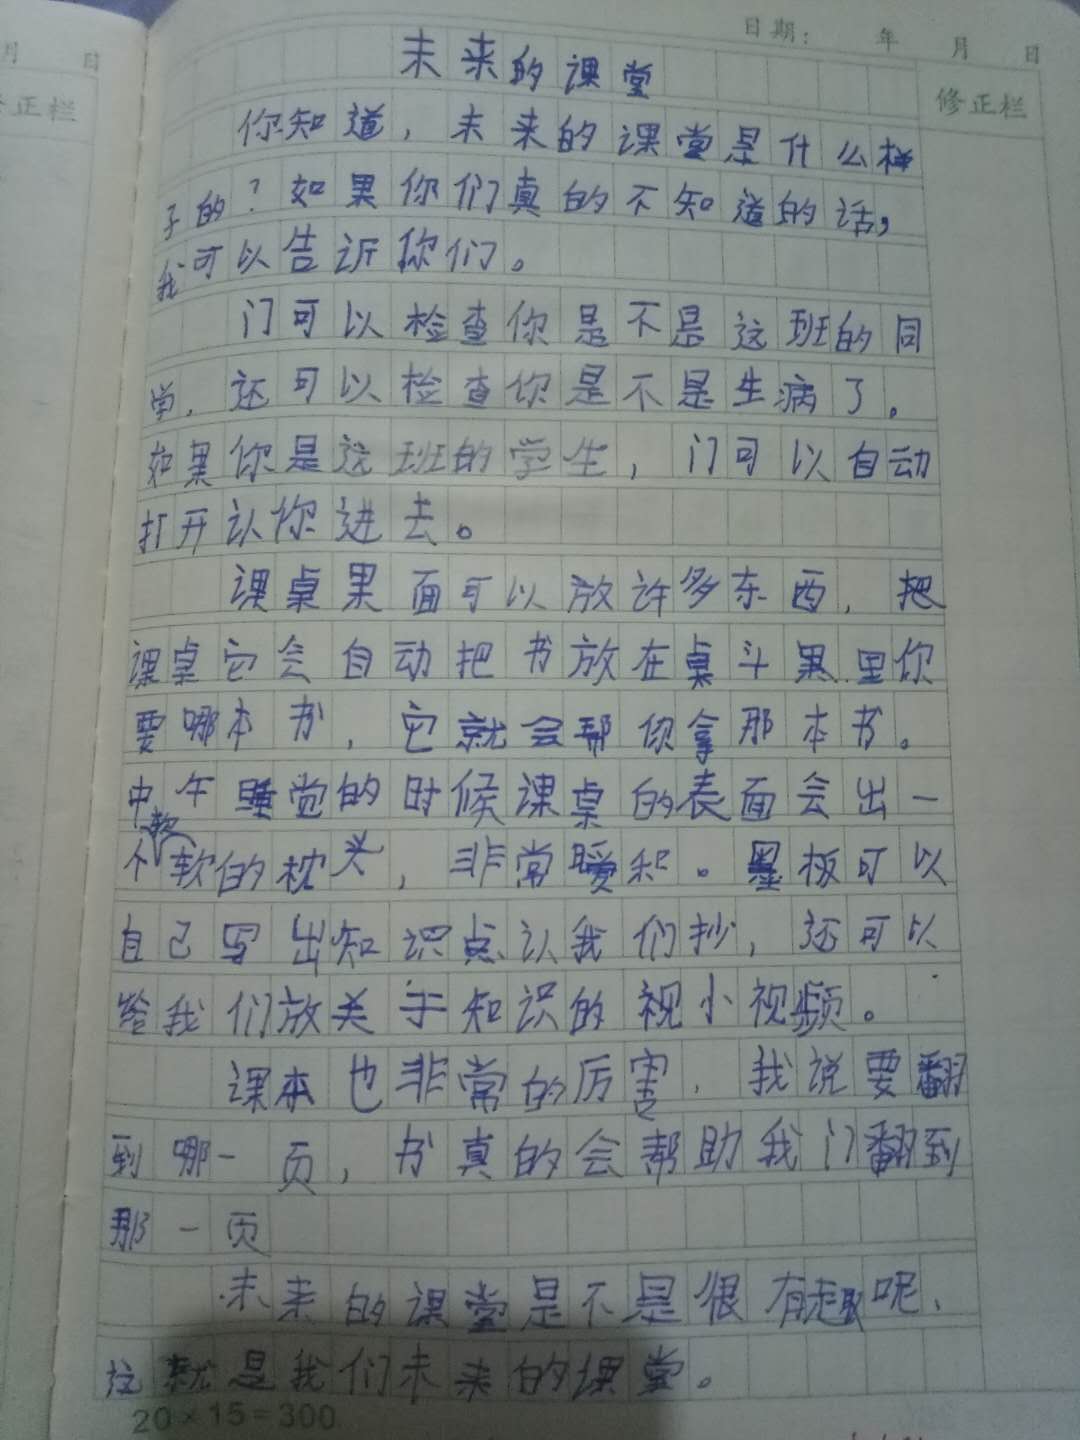 日期： 年 月 日
月 日
修正栏
正栏
未来的课堂
你知道，未来的课堂是什么样
子的？如果你们真的不知道的话，
我可以告诉你们。
门可以检查你是不是这班的同
学，还可以检查你是不是生病了。
如果你是这班的学生，门可以自动
打开认你进去。
课桌果面可以放许多东西，把
课桌它会自动把书放在桌斗里你
要哪本书，它就会帮你拿那本书。
中午睡觉的时候课桌的表面会出一
个软软的枕头，非常暖和。黑板可以
自己写出知识点认我们抄，还可以
给我们放关于知识的视小视频。
课本也非常的厉害，我说要翻
到哪一页，书真的会帮助我门翻到
那一页
未来的课堂是不是很有趣呢、
这就是我们未来的课堂。
20×15=300